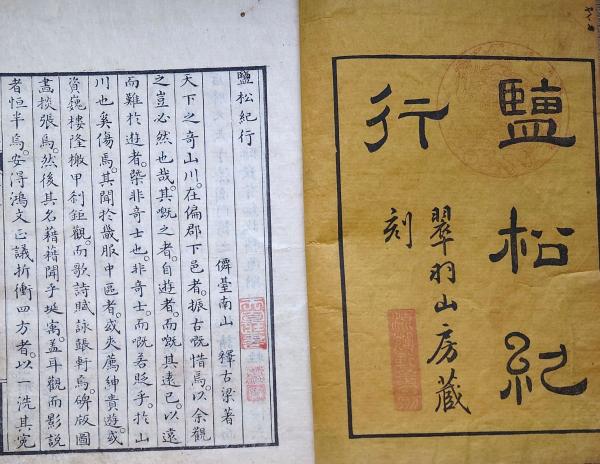 鹽松紀
行
翠羽山房藏
刻
鹽松紀行
僊臺南山 釋古梁著
天下之奇山川。在偏郡下邑者。振古嘅惜焉。以余觀
之豈必然也哉。其嘅之者。自遊者。而嘅其遠已。以遠
而難於遊者。槩非奇士也。非奇士。而嘅若貶乎。於山
川也奚傷焉。其聞於畿服中區者。或夾薦紳貴遊。或
資巍樓隆甲刹鉅觀。而歌詩賦詠軒焉。碑版圖
畫掞張焉。然後其名藉藉聞乎埏寓。蓋耳觀而影說
者恒半焉。安得鴻文正議折衝四方者。以一洗其寃